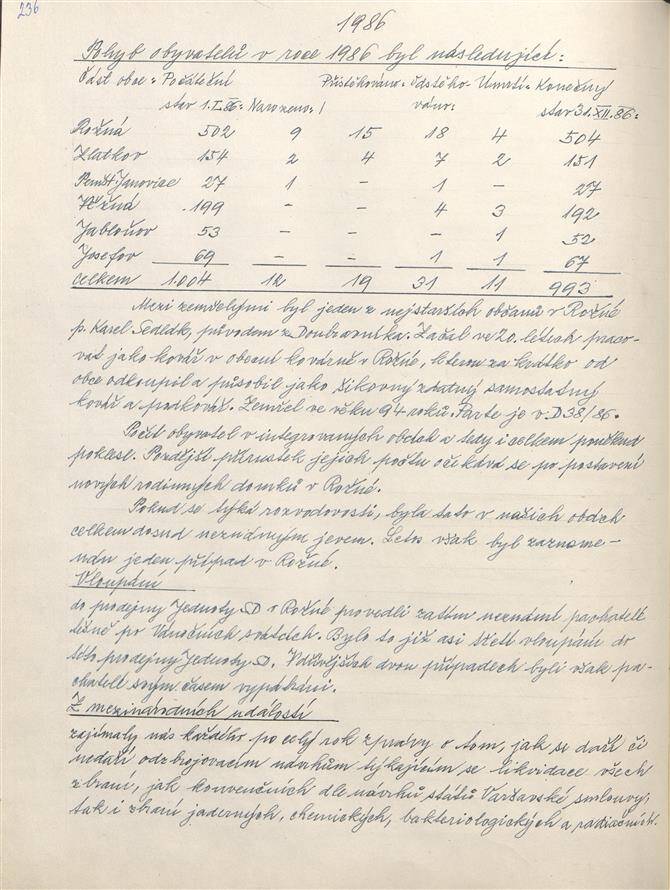 236
1986
Pohyb obyvatelů v roce 1986 byl následující:
Část obce: Počáteční Přistěhováno: Odstěho- Umrtí: Konečný
stav 1.I.86: Narozeno: váno: stav 31.XII.86:
Rožná 502 9 15 18 4 504
Zlatkov 154 2 4 7 2 151
Pernšt. Janovice 27 1 - 1 - 27
Věžná 199 - - 4 3 192
Jabloňov 53 - - - 1 52
Josefov 69 - - 1 1 67
celkem 1.004 12 19 31 11 993
Mezi zemřelými byl jeden z nejstarších občanů v Rožné
p. Karel Sedlák, původem z Doubravníka. Začal ve 20. létech praco-
vat jako kovář v obecní kovárně v Rožné, kterou za krátko od
obce odkoupil a působil jako šikovný zdatný samostatný
kovář a podkovář. Zemřel ve věku 94 roků. Parte je v D 38/86.
Počet obyvatel v integrovaných obcích a tedy i celkem poněkud
poklesl. Pozdější přírustek jejich počtu očekává se po postavení
nových rodinných domků v Rožné.
Pokud se týká rozvodovosti, byla tato v našich obcích
celkem dosud neznámým jevem. Letos však byl zazname-
nán jeden případ v Rožné.
Vloupání
do prodejny Jednoty SD v Rožné provedli zatím neznámí pachatelé
těsně po Vánočních svátcích. Bylo to již asi třetí vloupání do
této prodejny Jednoty SD. V dřívějších dvou případech byli však pa-
chatelé svým časem vypátráni.
Z mezinárodních událostí
zajímaly nás každého po celý rok zprávy o tom, jak se daří či
nedaří odzbrojovacím návrhům týkajícím se likvidace všech
zbraní, jak konvenčních dle návrhů států Varšavské smlouvy,
tak i zbraní jaderných, chemických, bakteriologických a radiačních.